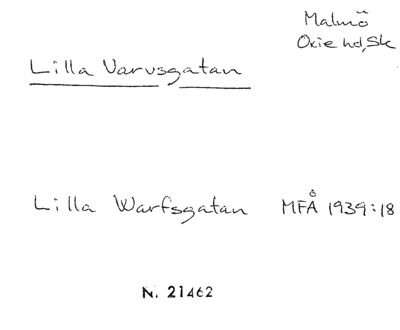 Malmö
Oxie hd, Sk
Lilla Varvsgatan
Lilla Warfsgatan MFÅ 1939:18
N. 21462